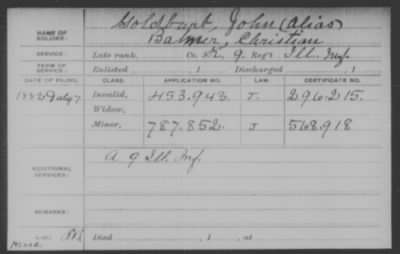 NAME OF SOLDIER: Goldburt, John (alias)
Balmer, Christian
SERVICE: Late rank, Co. K, 9 Reg't Ill. Inf.
TERM OF SERVICE: Enlisted , 1 Discharged , 1
DATE OF FILING. CLASS. APPLICATION NO. LAW. CERTIFICATE NO.
1882 July 7 Invalid, 453.943. J. 296.215.
Widow,
Minor, 787.852. J 568.918
ADDITIONAL SERVICES: A 9 Ill. Inf.
REMARKS:
Died , 1 , at